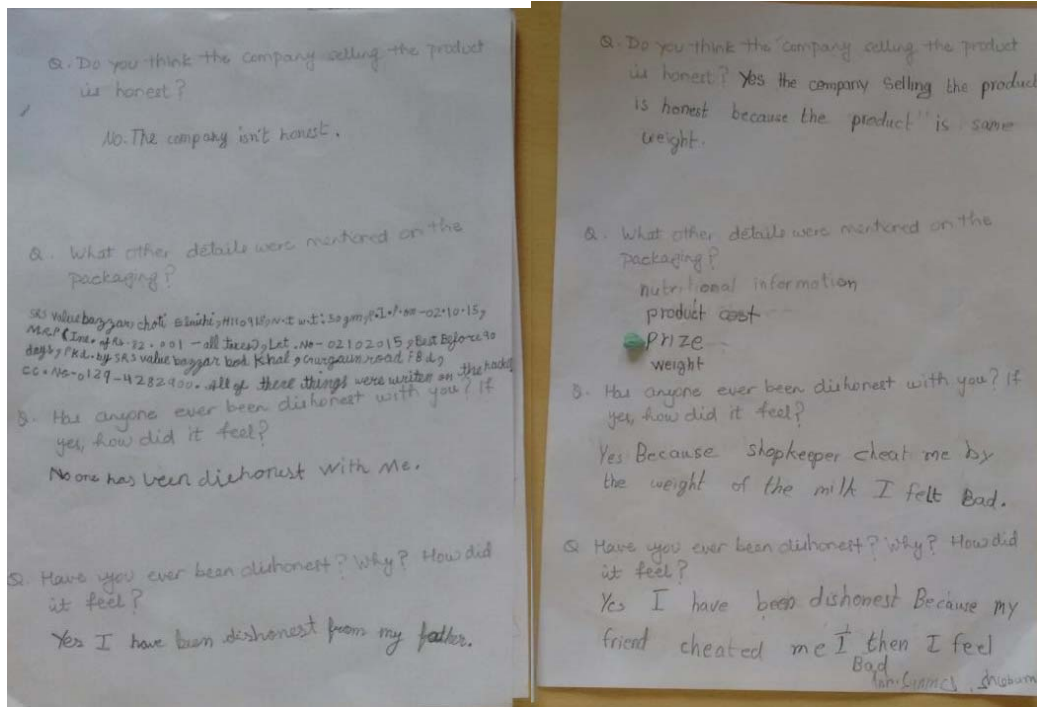 Q. Do you think the company selling the product
is honest?
No. The company isn't honest.
Q. What other details were mentioned on the
packaging?
SRS value bazzar choti
days, Pkd. by SRS value bazzar bad Khal, Gurgaun road FBd,
CC. No-0129-4282900. all of these things were writen on the
Q. Has anyone ever been dishonest with you? If
yes, how did it feel?
No one has been dishonest with me.
Q. Have you ever been dishonest? Why? How did
it feel?
Yes I have been dishonest from my father.
Q. Do you think the company selling the product
is honest? Yes the company Selling the product
is honest because the product is same
weight.
Q. What other details were mentioned on the
packaging?
nutritional information
product cost
Prize
weight
Q. Has anyone ever been dishonest with you? If
yes, how did it feel?
Yes Because shopkeeper cheat me by
the weight of the milk I felt Bad.
Q Have you ever been dishonest? Why? How did
it feel?
Yes I have been dishonest Because my
friend cheated me I then I feel
Bad